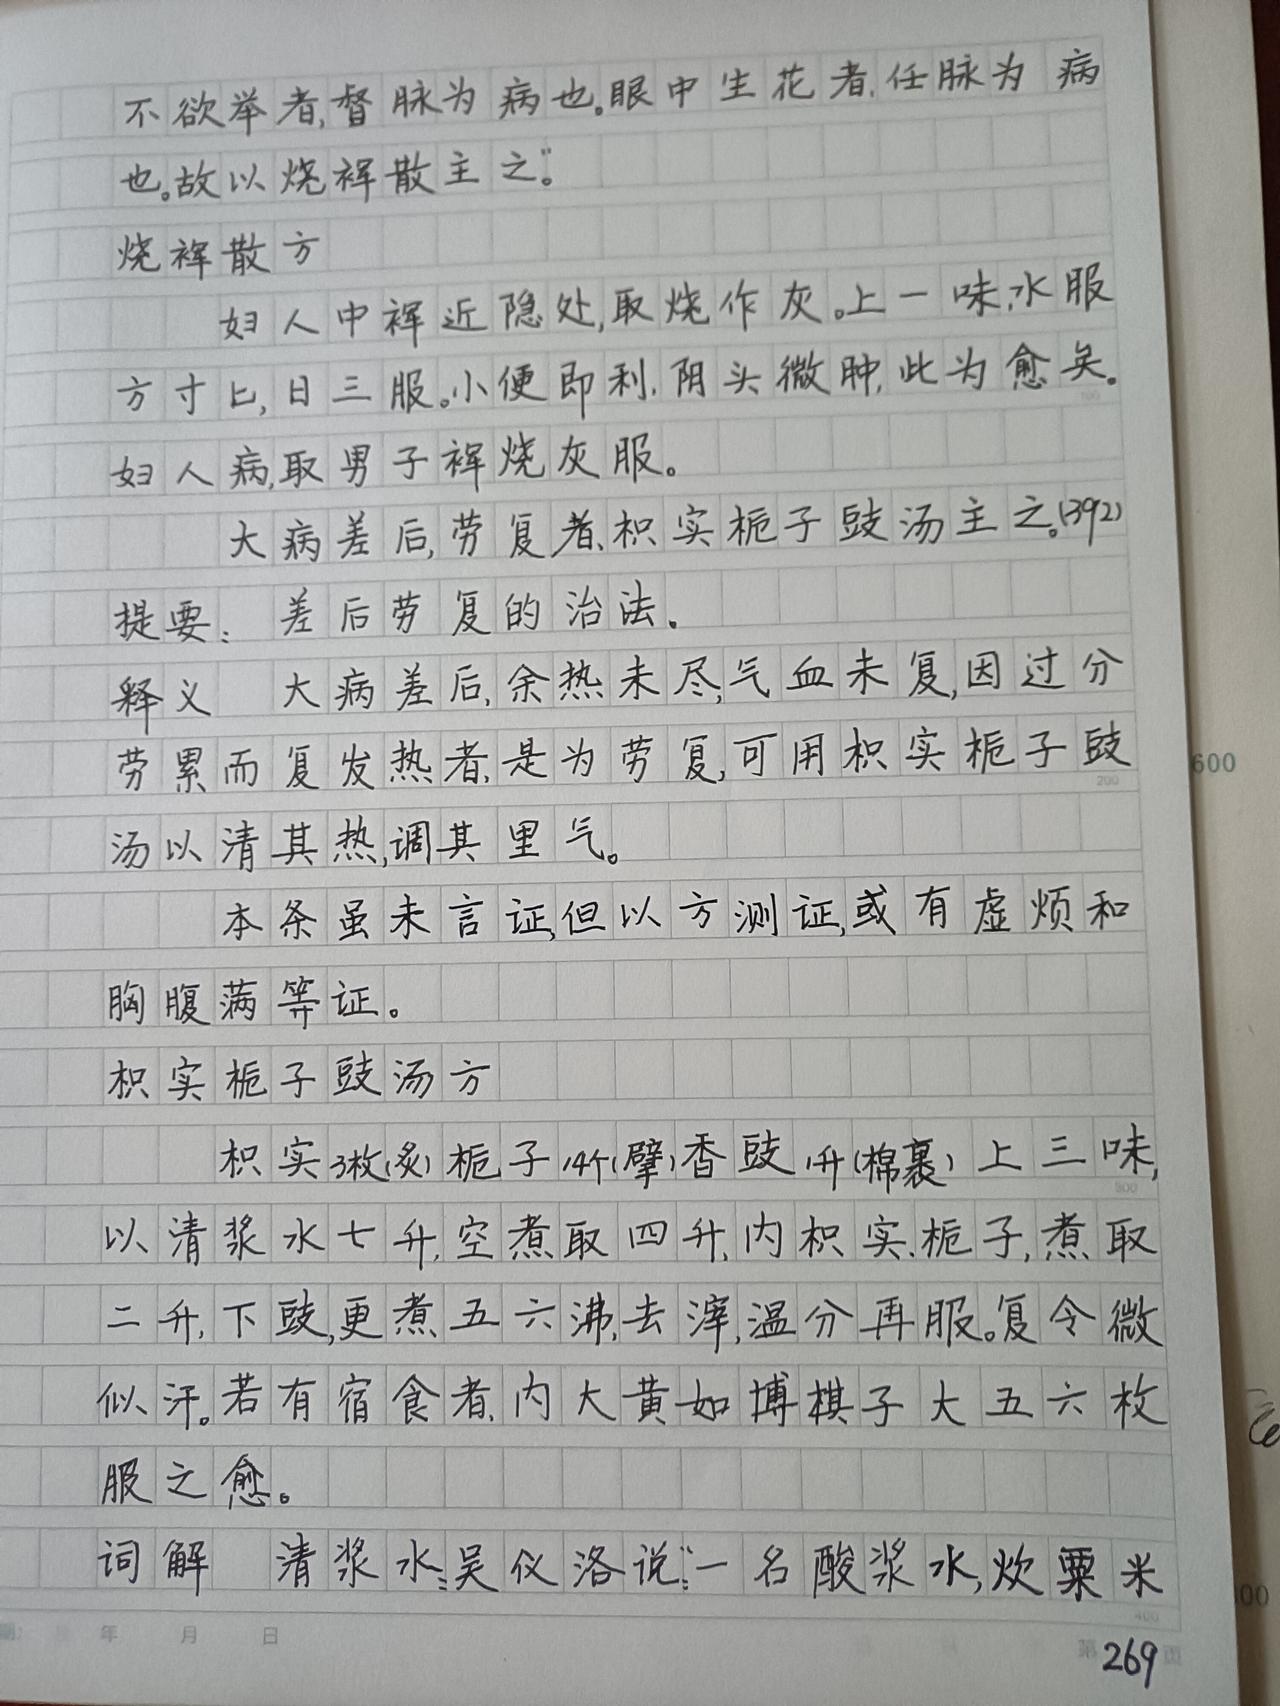 不欲举者,督脉为病也。眼中生花者,任脉为病
也。故以烧裈散主之。”
烧裈散方
妇人中裈近隐处,取烧作灰。上一味,水服
方寸匕,日三服。小便即利,阴头微肿,此为愈矣。
100
妇人病,取男子裈烧灰服。
大病差后,劳复者,枳实栀子豉汤主之。(392)
提要:差后劳复的治法。
释义 大病差后,余热未尽,气血未复,因过分
劳累而复发热者,是为劳复,可用枳实栀子豉
200
600
汤以清其热,调其里气。
本条虽未言证,但以方测证,或有虚烦和
胸腹满等证。
枳实栀子豉汤方
枳实3枚(炙)栀子14个(擘)香豉1升(棉裹)上三味,
300
以清浆水七升,空煮取四升,内枳实、栀子,煮取
二升,下豉,更煮五六沸,去滓,温分再服。复令微
似汗。若有宿食者,内大黄如博棋子大五六枚
服之愈。
词解 清浆水:吴仪洛说:“一名酸浆水,炊粟米
400
年 月 日
第269页